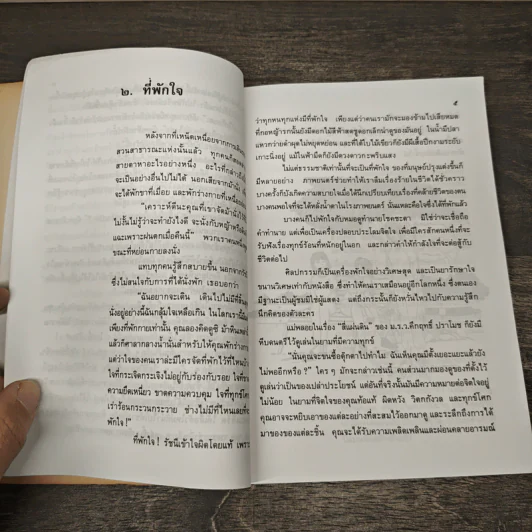 ๒. ที่พักใจ
หลังจากที่เหน็ดเหนื่อยจากการเดิน
สวนสาธารณะแห่งนั้นแล้ว ทุกคนก็
สายตาหาอะไรอย่างหนึ่ง อะไรที่กล่าวถึง
จะเป็นอย่างอื่นไปไม่ได้ นอกเสียจากม้านั่ง
จะได้พักขาที่เมื่อย และพักร่างกายที่เหนื่อย
"เคราะห์ดีนะคุณที่เขาจัดม้านั่งไว้
ไม่งั้นไม่รู้ว่าจะทำยังไงดี จะนั่งกับหญ้าก็
แฉะเพราะฝนตกเมื่อคืนนี้" พวกเราคนหนึ่ง
ขณะที่หย่อนกายลงนั่ง
แทบทุกคนรู้สึกสบายขึ้น นอกจาก
ซึ่งไม่สนใจกับการที่ได้นั่งพัก เธอบอกว่า
"ฉันอยากจะเดิน เดินไปไม่มีที่
นั่งอยู่อย่างนี้ฉันกลุ้มใจเหลือเกิน ในโลกเรานี้
เพียงที่พักกายเท่านั้น คุณลองคิดดูซิ ม้าหิน
แล้วก็ศาลากลางน้ำนั่นสำหรับให้คุณพักร่าง
แต่ว่าใจของคนเราล่ะมีใครจัดที่พักไว้ที่ไหน
ใจที่กระเจิดกระเจิงไม่อยู่กับร่องกับรอย ใจที่
ความยึดเหนี่ยว ขาดความควบคุม ใจที่
เร่าร้อนกระวนกระวาย ช่างไม่มีที่ไหนเลย
พักใจ!"
ที่พักใจ ! รัชนีเข้าใจผิดโดยแท้
๕
ว่าทุกหนทุกแห่งมีที่พักใจ เพียงแต่ว่าคนเรามักจะมองข้ามไปเสียหมด
ที่กอหญ้ารกนั้นยังมีดอกไม้สีฟ้าสดชูดอกเล็กน่าดูของมันอยู่ ในน้ำมีปลา
แหวกว่ายดำผุดไม่หยุดหย่อน และที่ใต้ใบไม้เขียวก็ยังมีผีเสื้อปีกงามระยับ
เกาะนิ่งอยู่ แม้ในฟ้ามืดก็ยังมีดวงดาวกะพริบแสง
ไม่แต่ธรรมชาติเท่านั้นที่จะเป็นที่พักใจ ของที่มนุษย์ปรุงแต่งขึ้นก็
มีหลายอย่าง ภาพยนตร์ช่วยทำให้เราลืมเรื่องร้ายในชีวิตได้ชั่วคราว
บางครั้งก็บังเกิดความสบายใจเมื่อได้นึกเปรียบเทียบเรื่องที่คล้ายชีวิตของตน
บางคนพอใจที่จะได้หลั่งน้ำตาในโรงภาพยนตร์ นั่นแหละคือใจซึ่งได้ที่พักแล้ว
บางคนก็ไปพักใจกับหมอดูทำนายโชคชะตา มิใช่ว่าจะเชื่อถือ
คำทำนาย แต่เพื่อเป็นเครื่องปลอบประโลมจิตใจ เพื่อมีใครสักคนหนึ่งที่จะ
รับฟังเรื่องทุกข์ร้อนที่หนักอยู่ในอก และกล่าวคำให้กำลังใจที่จะต่อสู้กับ
ชีวิตต่อไป
ศิลปกรรมก็เป็นเครื่องพักใจอย่างวิเศษสุด และเป็นยารักษาใจ
ขนานวิเศษเท่ากับหนังสือ ซึ่งทำให้คนเราเสมือนอยู่อีกโลกหนึ่ง ซึ่งตนเอง
มีฐานะเป็นผู้ชมมิใช่ผู้แสดง แต่ถึงกระนั้นก็ยังหวั่นไหวไปกับความรู้สึก
นึกคิดของตัวละคร
แม่พลอยในเรื่อง "สี่แผ่นดิน" ของ ม.ร.ว.คึกฤทธิ์ ปราโมช ก็ยังมี
หีบดนตรีไว้ดูเล่นในยามที่มีความทุกข์
"นั่นคุณจะขนซื้อตุ๊กตาไปทำไม ฉันเห็นคุณมีตั้งเยอะแยะแล้วยัง
ไม่พออีกหรือ?" ใคร ๆ มักจะกล่าวเช่นนี้ คนส่วนมากมองดูของที่ตั้งไว้
ดูเล่นว่าเป็นของเปล่าประโยชน์ แต่อันที่จริงนั้นมันมีความหมายต่อจิตใจอยู่
ไม่น้อย ในยามที่จิตใจของคุณท้อแท้ ผิดหวัง วิตกกังวล และทุกข์โศก
คุณอาจจะหยิบเอาของแต่ละอย่างที่สะสมไว้ออกมาดู และระลึกถึงการได้
มาของของแต่ละชิ้น คุณจะได้รับความเพลิดเพลินและผ่อนคลายอารมณ์